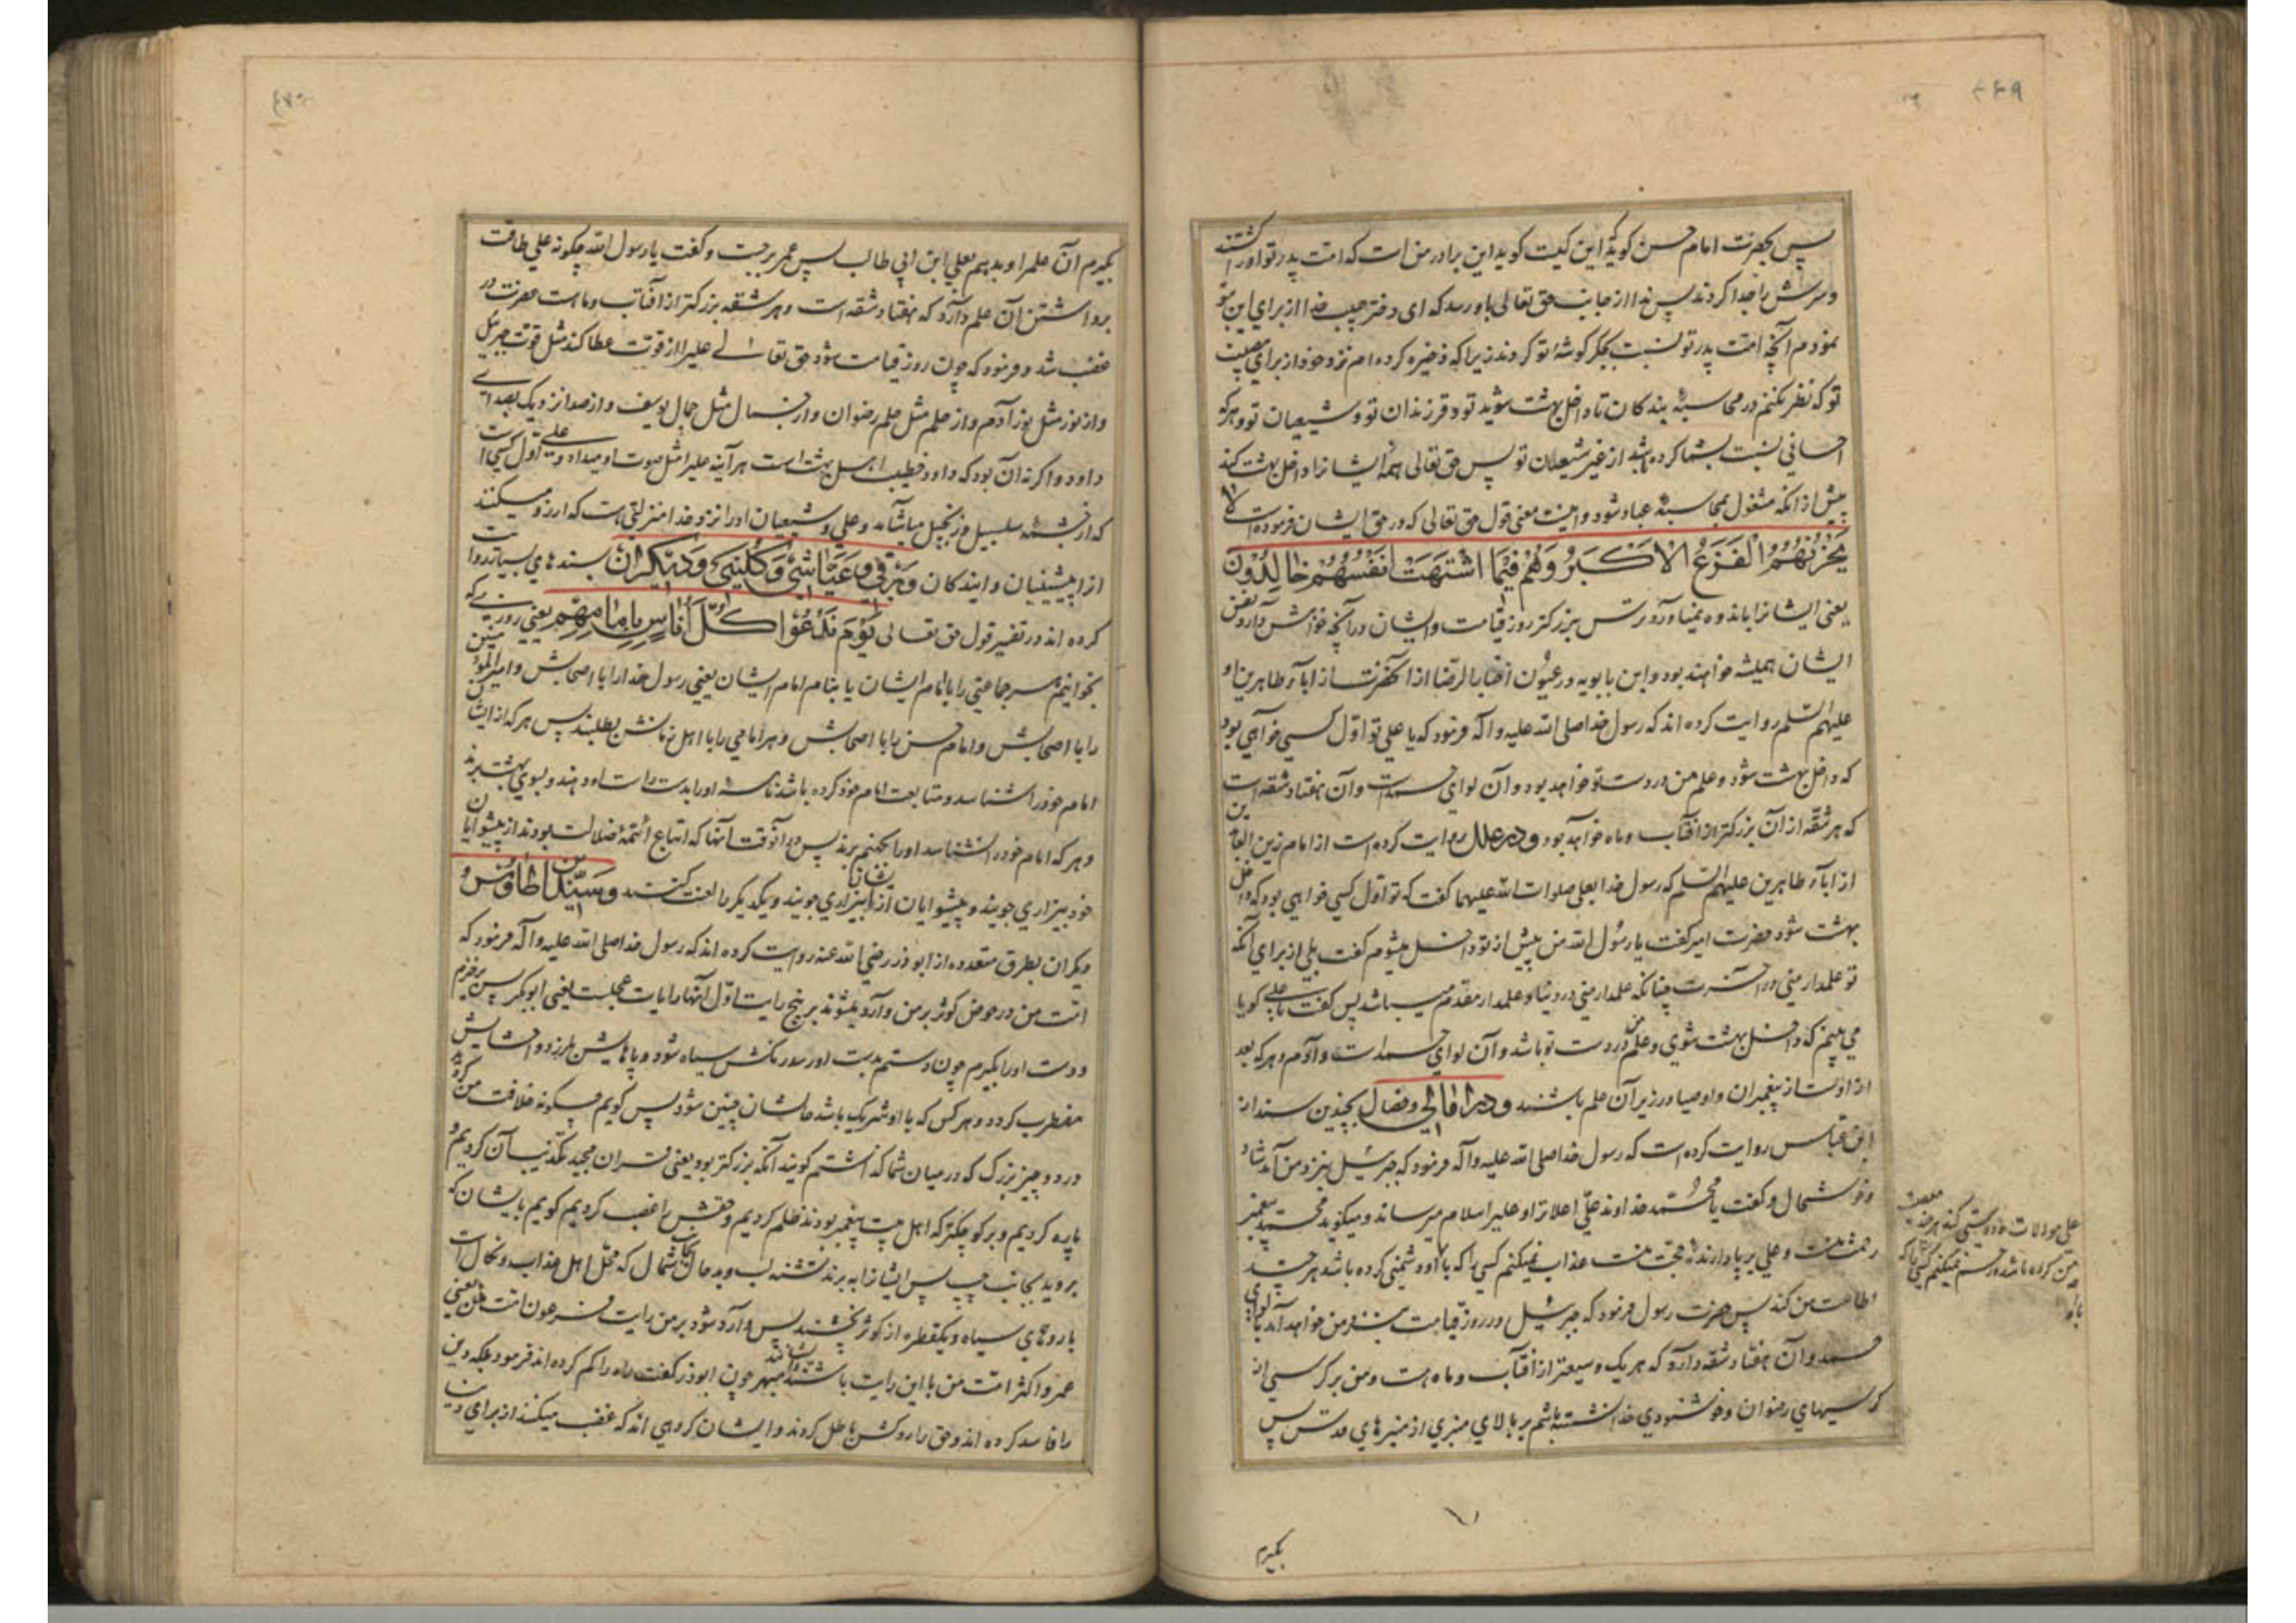 ۴۶۹
پس بحضرت امام حسن گوید که این کیست گوید این برادر من است که امت پدر تو او را کشتند
و سرش را جدا کردند پس ندا از جانب حق تعالی باو رسد که ای دختر حبیب خدا از برای این بتو
نمودم آنچه امت پدر تو نسبت بجگر گوشه تو کردند زیرا که ذخیره کرده ام نزد خود از برای مصیبت
تو که نظر نکنم در محاسبه بندگان تا داخل بهشت شوید تو و فرزندان تو و شیعیان تو و هر که
احسانی نسبت بشما کرده باشد از غیر شیعیان تو پس حق تعالی همه ایشانرا داخل بهشت کند
پیش از آنکه مشغول بمحاسبه عباد شود و اینست معنی قول حق تعالی که در حق ایشان فرموده است لا
یحزنهم الفزع الاکبر و هم فیما اشتهت انفسهم خالدون
یعنی ایشانرا باندوه نمیآورد ترس بزرگتر روز قیامت و ایشان در آنچه خواهش دارد نفس
ایشان همیشه خواهند بود و ابن بابویه در عیون اخبار الرضا از آنحضرت از آباء طاهرین او
علیهم السلم روایت کرده اند که رسول خدا صلی الله علیه و آله فرمود که یا علی تو اول کسی خواهی بود
که داخل بهشت شود و علم من در دست تو خواهد بود و آن لوای حمد است و آن هفتاد شقه است
که هر شقه از آن بزرگتر از آفتاب و ماه خواهد بود و در علل روایت کرده است از امام زین العابدین
از آباء طاهرین علیهم السلم که رسول خدا بعلی صلوات الله علیهما گفت که تو اول کسی خواهی بود که داخل
بهشت شود حضرت امیر گفت یا رسول الله من پیش از تو داخل میشوم گفت بلی از برای آنکه
تو علمدار منی در آخرت چنانکه علمدار منی در دنیا و علمدار مقدم میباشد پس گفت یا علی گویا
می بینم که داخل بهشت شوی و علم من در دست تو باشد و آن لوای حمد است و آدم و هر که بعد
از اوست از پیغمبران و اوصیا در زیر آن علم باشند و در امالی و خصال بچندین سند از
ابن عباس روایت کرده است که رسول خدا صلی الله علیه و آله فرمود که جبرئیل بنزد من آمد شاد
و خوشحال و گفت یا محمد خداوند علی اعلا ترا و علی را سلام میرساند و میگوید محمد پیغمبر
رحمت منست و علی برپا دارنده حجت منست عذاب نمیکنم کسی را که با او دشمنی کرده باشد هر چند
اطاعت من کند پس حضرت رسول فرمود که جبرئیل در روز قیامت بنزد من خواهد آمد با لوای
حمد و آن هفتاد شقه دارد که هر یک وسیعتر از آفتاب و ماه است و من بر کرسی از
کرسیهای رضوان و خوشنودی خدا نشسته باشم بر بالای منبری از منبرهای قدس پس
علی موالات و دوستی کند هر چند معصیت
من کرده باشد و رحم نمیکنم کسی را که
با او
بگیرم
۴۷۰
بگیرم آن علم را و بدهم بعلی ابن ابی طالب پس عمر برجست و گفت یا رسول الله چگونه علی طاقت
برداشتن آن علم دارد که هفتاد شقه است و هر شقه بزرگتر از آفتاب و ماه است حضرت در
غضب شد و فرمود که چون روز قیامت شود حق تعالی علی را از قوت عطا کند مثل قوت جبرئیل
و از نور مثل نور آدم و از حلم مثل حلم رضوان و از جمال مثل جمال یوسف و از صدا نزدیک بصدای
داود و اگر نه آن بود که داود خطیب اهل بهشت است هر آینه علی را مثل صوت او میداد و علی اول کسی است
که از چشمه سلسبیل و زنجبیل میآشامد و علی و شیعیان او را نزد خدا منزلتی هست که آرزو میکنند
از پیشینیان و آیندگان و برقی و عیاشی و کلینی و دیگران بسندهای بسیار روایت
کرده اند در تفسیر قول حق تعالی یوم ندعوا کل اناس بامامهم یعنی روزی که
بخوانیم هر جماعتی را با امام ایشان یا بنام امام ایشان یعنی رسول خدا را با اصحابش و امیر المؤمنین
را با اصحابش و امام حسن را با اصحابش و هر امامی را با اهل زمانش بطلبند پس هر که از ایشان
امام خود را شناسد و متابعت امام خود کرده باشد نامه او را بدست راست او دهند و بسوی بهشت برند
و هر که امام خود را نشناسد او را بجهنم برند پس در آنوقت آنها که اتباع ائمه ضلالت بودند از پیشوایان
خود بیزاری جویند و پیشوایان از ایشان بیزاری جویند و یکدیگر را لعنت کنند و سید ابن طاوس و
دیگران بطرق متعدده از ابوذر رضی الله عنه روایت کرده اند که رسول خدا صلی الله علیه و آله فرمود که
امت من در حوض کوثر بر من وارد میشوند بر پنج رایت اول آنها رایات عجلست یعنی ابوبکر پس برخیزم
و دست او را بگیرم چون دستم بدست او رسد رنگش سیاه شود و پاهایش بلرزد و احشایش
مضطرب گردد و هر کس که با او شریک باشد حالشان چنین شود پس گویم چگونه خلافت من کردید
در دو چیز بزرگ که در میان شما گذاشتم گویند آنکه بزرگتر بود یعنی قرآن مجید تکذیب آن کردیم و
پاره کردیم و بر کوچکتر که اهل بیت پیغمبر بودند ظلم کردیم و حقش را غصب کردیم گویم بایشان که
بروید بجانب چپ پس ایشانرا به برند تشنه لب و بدحال بجانب شمال که محل اهل عذاب و نکال است
با روهای سیاه و یکقطره از کوثر نچشند پس وارد شود بر من رایت فرعون امت من یعنی
عمر و اکثر امت من با این رایت باشند و ایشانند مبهرجون ابوذر گفت راه را گم کرده اند فرمود بلکه دین
را فاسد کرده اند و حق را روکش باطل کردند و ایشان گروهی اند که غضب میکنند از برای دنیا